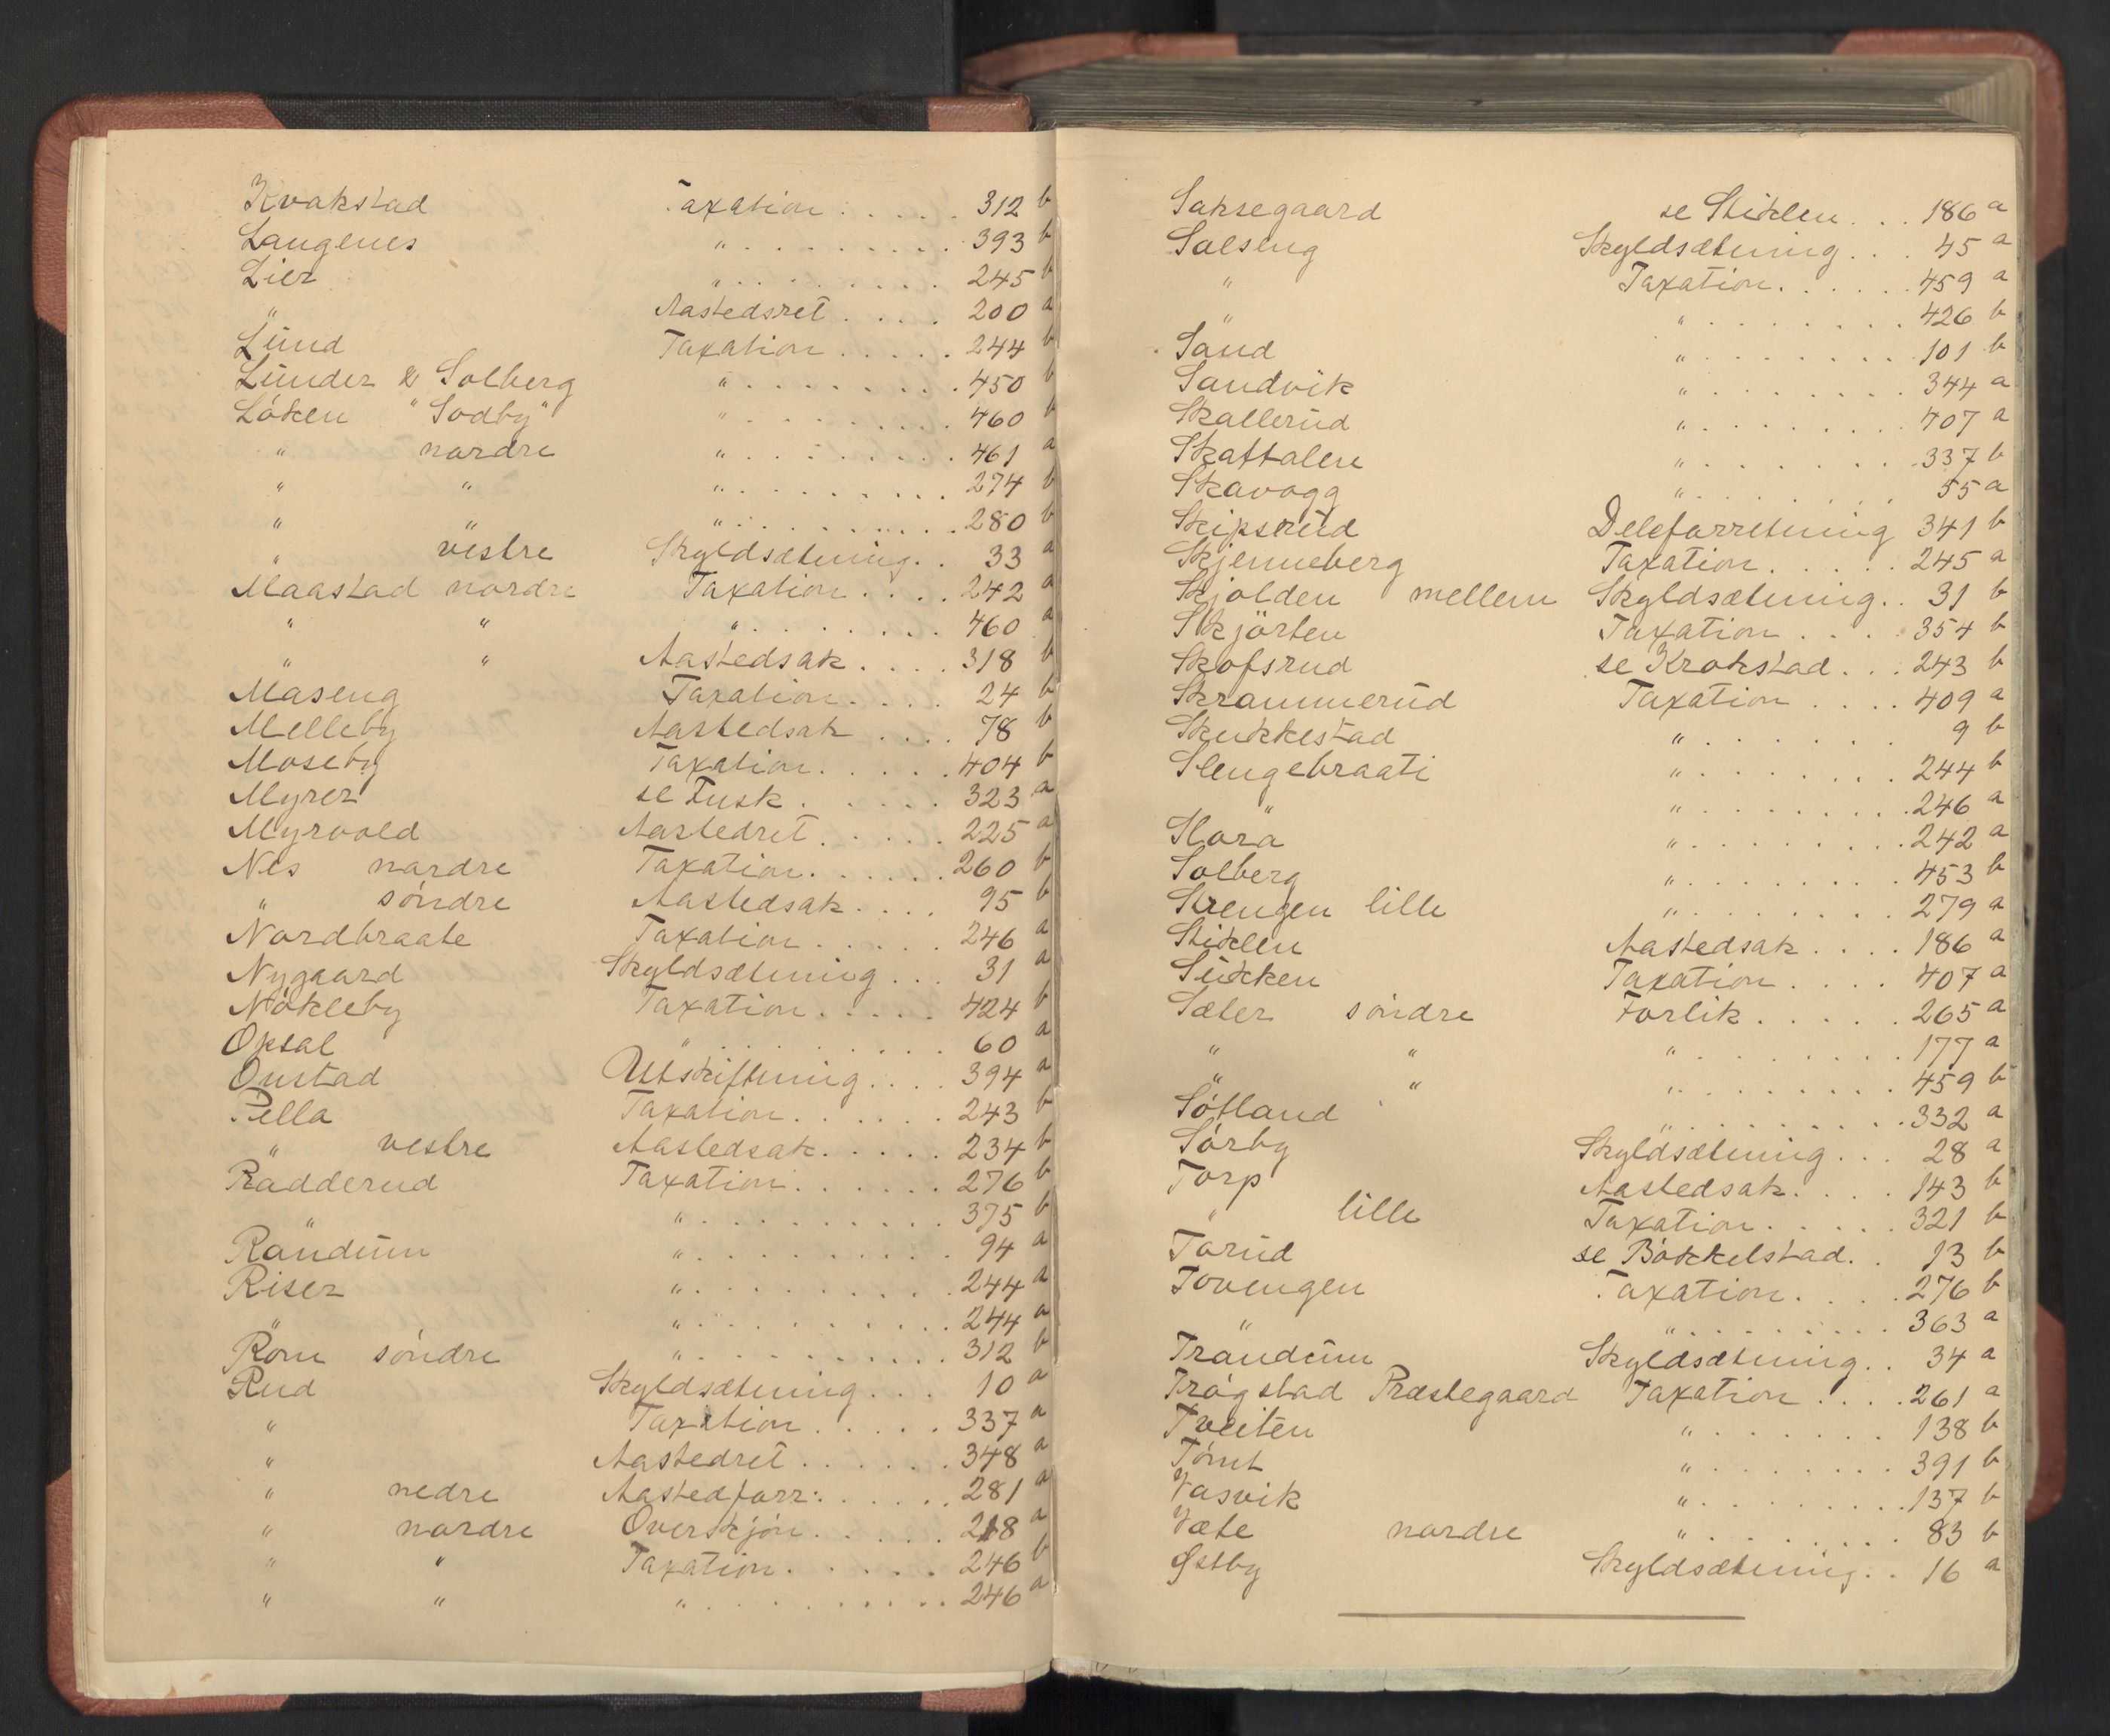 Kvakstad Taxation . . . . . 312 b
Laugenes " . . . . . . . . . 393 b
Lier " . . . . . . . . . 245 b
" Aastedsret . . . . 200 a
Lund Taxation . . . . . 244 b
Lunder & Solberg " . . . . . . . . 450 b
Löken "Sodby" " . . . . . . . . 460 b
" nordre " . . . . . . . . . 461 a
" " " . . . . . . . . . 274 b
" " " . . . . . . . . . 280 b
" vestre Skyldsætning . . 33 a
Maastad nordre Taxation . . . . 242 a
" " " . . . . . . . . 460 a
" " Aastedsak . . . . 318 b
Maseng Taxation . . . . 24 b
Melleby Aastedsak . . . . 78 b
Moseby Taxation . . . . . 404 b
Myrer se Fusk . . . . . 323 a
Myrvold Aastedret . . . . . 225 a
Nes nordre Taxation . . . . . . 260 b
" söndre Aastedsak . . . . 95 b
Nordbraate Taxation . . . . . 246 a
Nygaard Skyldsætning . . . 31 a
Nökleby Taxation . . . . . 424 b
Opsal " . . . . . . . . 60 a
Onstad Utskiftning . . . . 394 a
Pella Taxation . . . . . . 243 b
" vestre Aastedsak . . . . . 234 b
Rädderud Taxation . . . . . . 276 b
" " . . . . . . . . . 375 b
Randum " . . . . . . . . . 94 a
Riser " . . . . . . . . . 244 a
" " . . . . . . . . . 244 a
Rom söndre " . . . . . . . . . 312 b
Rud Skyldsætning . . . 10 a
" Taxation . . . . . 337 a
" Aastedret . . . . . . 348 a
" nedre Aastedforr: . . . . . . 281 a
" nordre Overskjön . . . . . 218 a
" " Taxation . . . . . . 246 b
" " " . . . . . . . . . 246 a
Saksegaard se Stiklen . . . 186 a
Salseng Skyldsætning . . . 45 a
" Taxation . . . . . . 459 a
" " . . . . . . . . 426 b
Sand " . . . . . . . . 101 b
Sandvik " . . . . . . . . 344 a
Skallerud " . . . . . . . . 407 a
Skattalen " . . . . . . . . 337 b
Skavogg " . . . . . . . . 55 a
Skipsrud Deleforretning 341 b
Skjenneberg Taxation . . . . . 245 a
Skjolden mellem Skyldsætning . . 31 b
Skjörten Taxation . . . . 354 b
Skofsrud se Krokstad . . . 243 b
Skrammerud Taxation . . . . 409 a
Skukkestad " . . . . . . . 9 b
Slengebraati " . . . . . . . . 244 b
" " . . . . . . . . 246 a
Slora " . . . . . . . . . 242 a
Solberg " . . . . . . . . 453 b
Strengen lille " . . . . . . . . 279 a
Stiklen Aastedsak . . . . 186 a
Sukken Taxation . . . . 407 a
Sæter söndre Forlik . . . . . 265 a
" " " . . . . . . . . 177 a
" " " . . . . . . . . 459 b
Söfland " . . . . . . . . . 332 a
Sörby Skyldsætning . . . 28 a
Torp Aastedsak . . . . 143 b
" lille Taxation . . . . . 321 b
Torud se Bökkelstad . . 13 b
Tovengen Taxation . . . . . 276 b
" " . . . . . . . . 363 a
Trandum Skyldsætning . . 34 a
Trögstad Præstegaard Taxation . . . . 261 a
Tveiten " . . . . . . . 138 b
Tömt " . . . . . . . . 391 b
Vasvik " . . . . . . . . 137 b
Væte nordre " . . . . . . . . 83 b
Østby Skyldsætning . . 16 a